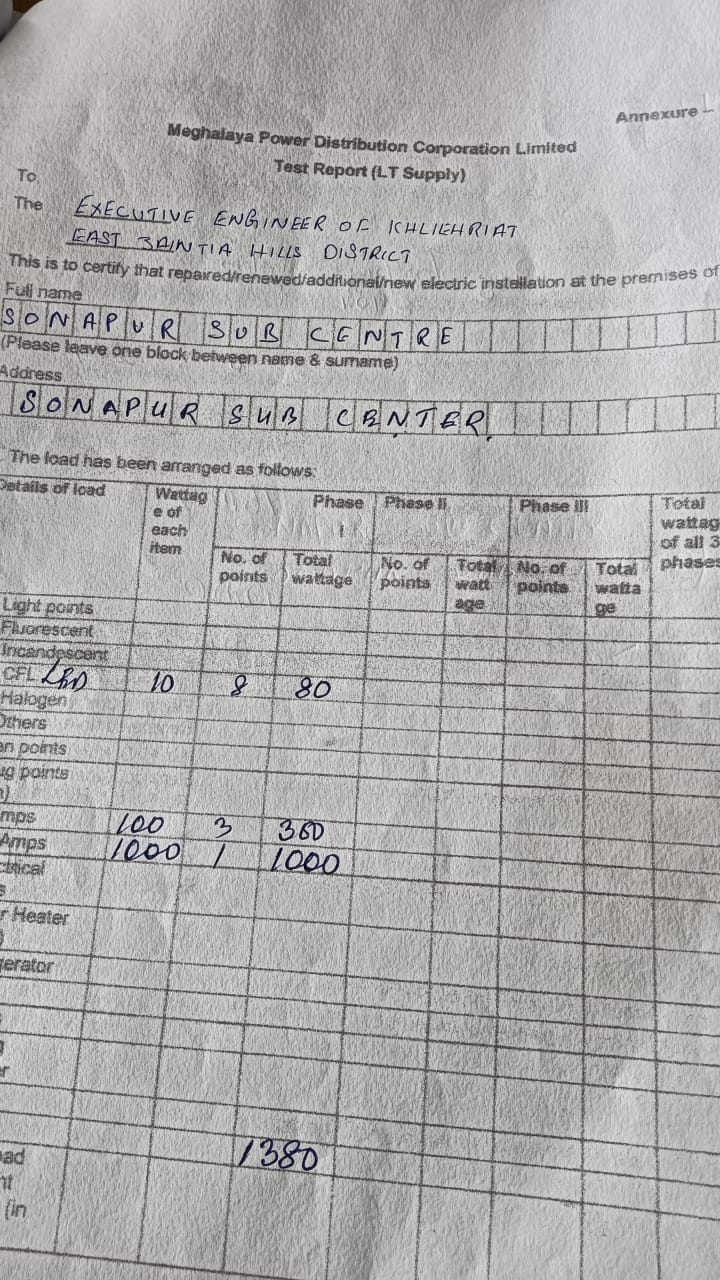 Annexure –
Meghalaya Power Distribution Corporation Limited
Test Report (LT Supply)
To,
The EXECUTIVE ENGINEER OF KHLIEHRIAT
EAST JAINTIA HILLS DISTRICT
This is to certify that repaired/renewed/additional/new electric installation at the premises of
Full name
SONAPUR SUB CENTRE
(Please leave one block between name & surname)
Address
SONAPUR SUB CENTER
The load has been arranged as follows:
Details of load Wattag e of each item Phase I Phase II Phase III Total wattag of all 3 phases
No. of points Total wattage No. of points Total watt age No. of points Total watta ge
Light points
Fluorescent
Incandescent
CFL LED 10 8 80
Halogen
Others
an points
ug points
mps 100 3 300
Amps 1000 1 1000
ctrical
r Heater
gerator
1380
oad
nt
(in